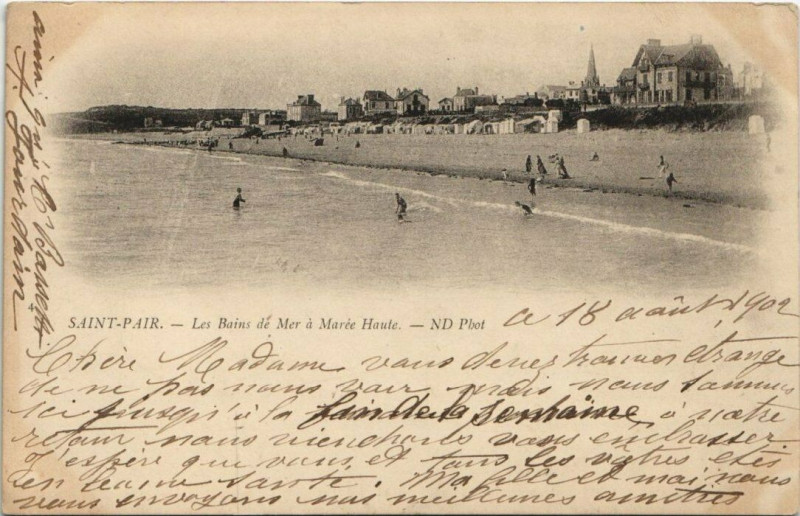 SAINT-PAIR. — Les Bains de Mer à Marée Haute. — ND Phot
ce 18 août 1902
Chère Madame vous devez trouver étrange
de ne pas nous voir mais nous sommes
ici jusqu'à la fin de la Semaine à notre
retour nous viendrons vous embrasser.
J'espère que vous et tous les vôtres etes
en bonne santé. Ma fille et moi nous
vous envoyons nos meilleures amitiés
ainsi qu'à
Jourdain